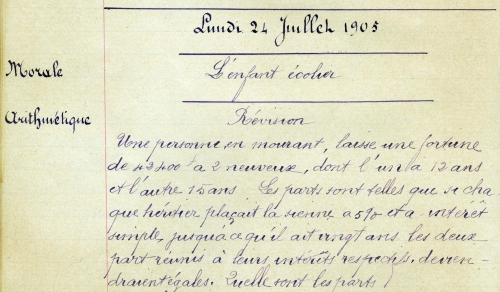 Lundi 24 Juillet 1905
Morale
L'enfant écolier
Arithmétique
Révision
Une personne, en mourant, laisse une fortune
de 42400f a 2 neuveux, dont l'un a 12 ans
et l'autre 15 ans. Les parts sont telles que si cha
que héritier plaçait la sienne a 5% et a intérêt
simple, jusqu'à ce qu'il ait vingt ans. les deux
part réunis à leurs intérêts respectifs. devien-
draient égales. Quelle sont les parts